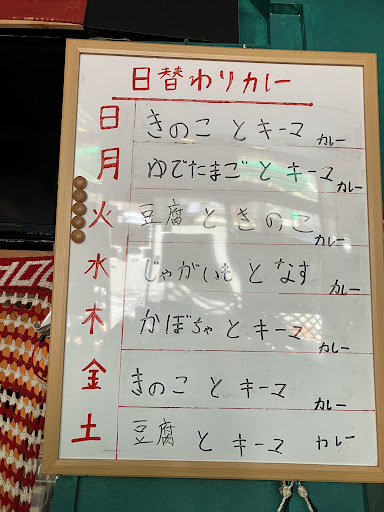 日替わりカレー
日 きのこ と キーマ カレー
月 ゆでたまご と キーマ カレー
火 豆腐 と きのこ カレー
水 じゃがいも と なす カレー
木 かぼちゃ と キーマ カレー
金 きのこ と キーマ カレー
土 豆腐 と キーマ カレー